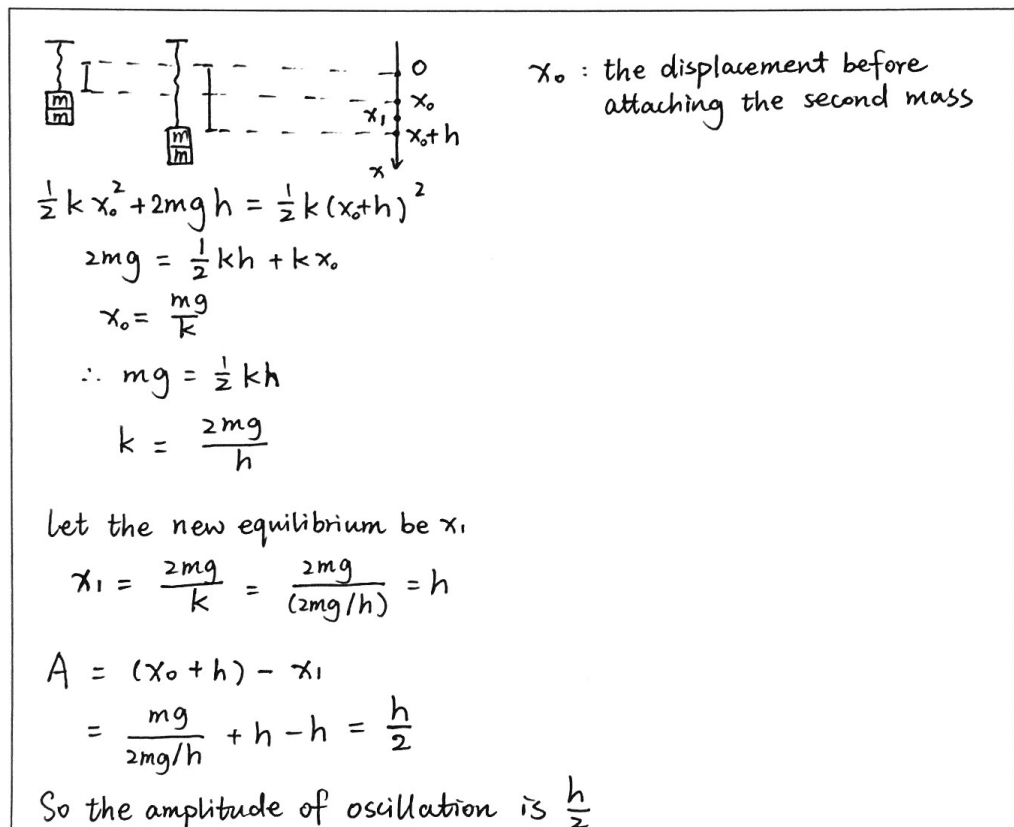 m
m
m
m
0
x₀
x₁
x₀+h
x
x₀ : the displacement before
attaching the second mass
½ k x₀² + 2mgh = ½ k (x₀+h)²
2mg = ½ kh + kx₀
x₀ = mg/k
∴ mg = ½ kh
k = 2mg/h
Let the new equilibrium be x₁
x₁ = 2mg/k = 2mg/(2mg/h) = h
A = (x₀ + h) - x₁
= mg/2mg/h + h - h = h/2
So the amplitude of oscillation is h/2